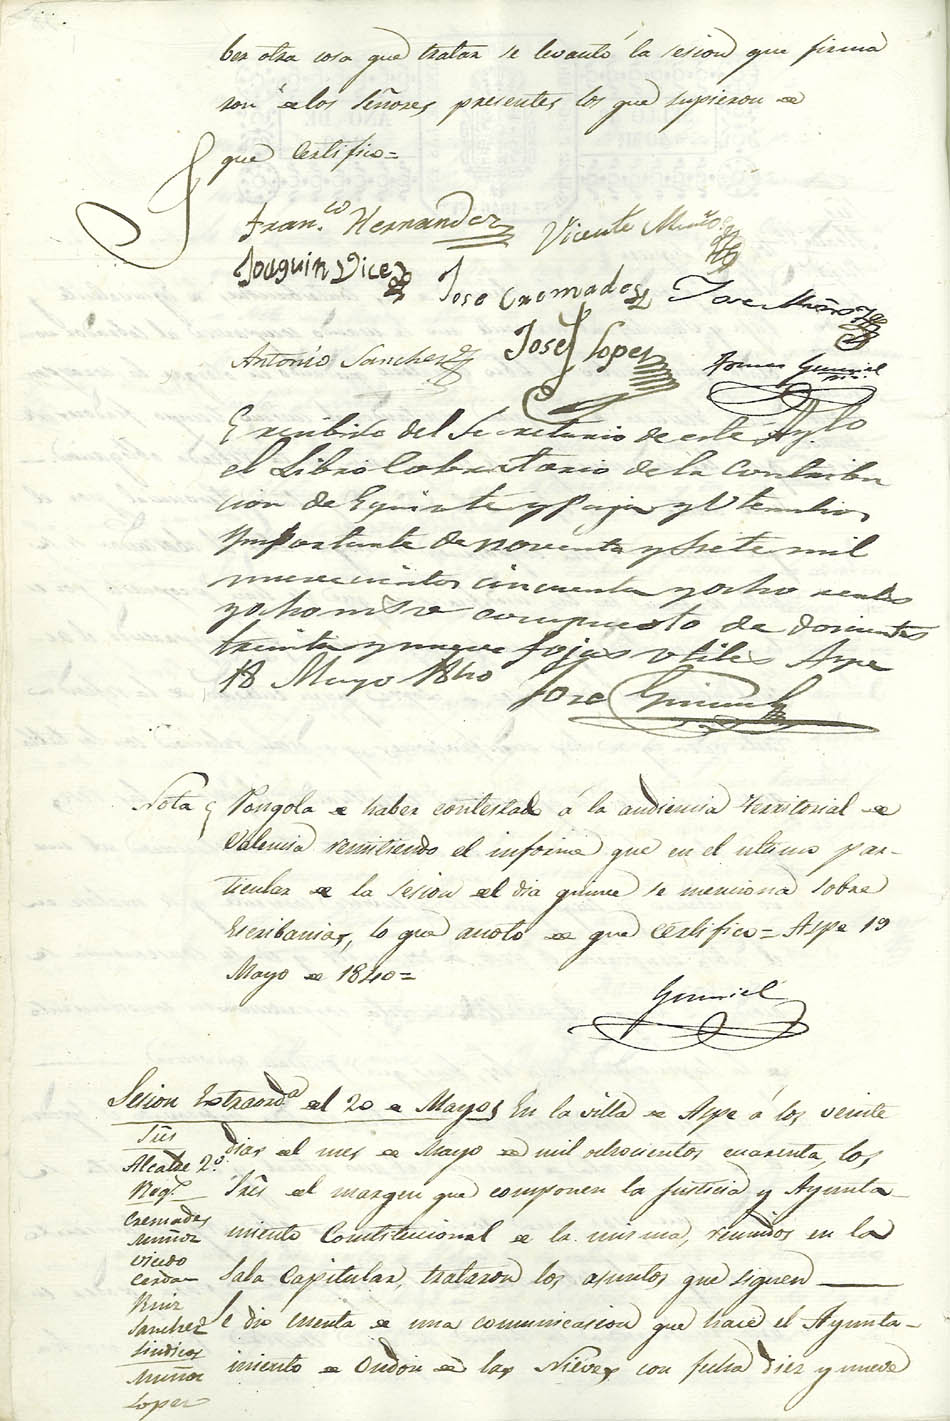 ber otra cosa que tratar se levantó la sesion que firma
ron de los Señores presentes los que supieron de
que Certifico=
Fran.co Hernandez
Vicente Muñoz
Joaquin Vicedo
Jose Cremades
Jose Muñoz
Antonio Sanchez
José Lopez
Gumiel
E recibido del Secretario de este Ayto
el Libro Cobratorio de la Contribu
cion de Equivte y Paja y Utencilios
Importante de noventa y siete mil
nuevecientos cincuenta y ocho reales
y ocho mrs compuesto de docientas
treinta y nueve fojas utiles Aspe
18 Mayo 1840
Jose Gumiel
Nota
Pongola de haber contestado á la audiencia territorial de
Valencia remitiendo el informe que en el ultimo par-
ticular de la sesion del dia quince se menciona sobre
Escribanias, lo que anoto de que Certifico= Aspe 19
Mayo de 1840=
Gumiel
Sesion Extraord.a del 20 de Mayo
En la villa de Aspe á los veinte
dias del mes de Mayo de mil ochocientos cuarenta, los
Sres del margen que componen la Justicia y Ayunta-
miento Constitucional de la misma, reunidos en la
Sala Capitular, trataron los asuntos que siguen
Se dio cuenta de una comunicacion que hace el Ayunta-
miento de Ondon de las Nieves con fecha diez y nueve
Sres
Alcalde 2.o
Reg.s
Cremades
Muñoz
Vicedo
Cerdan
Ruiz
Sanchez
Sindicos
Muñoz
Lopez